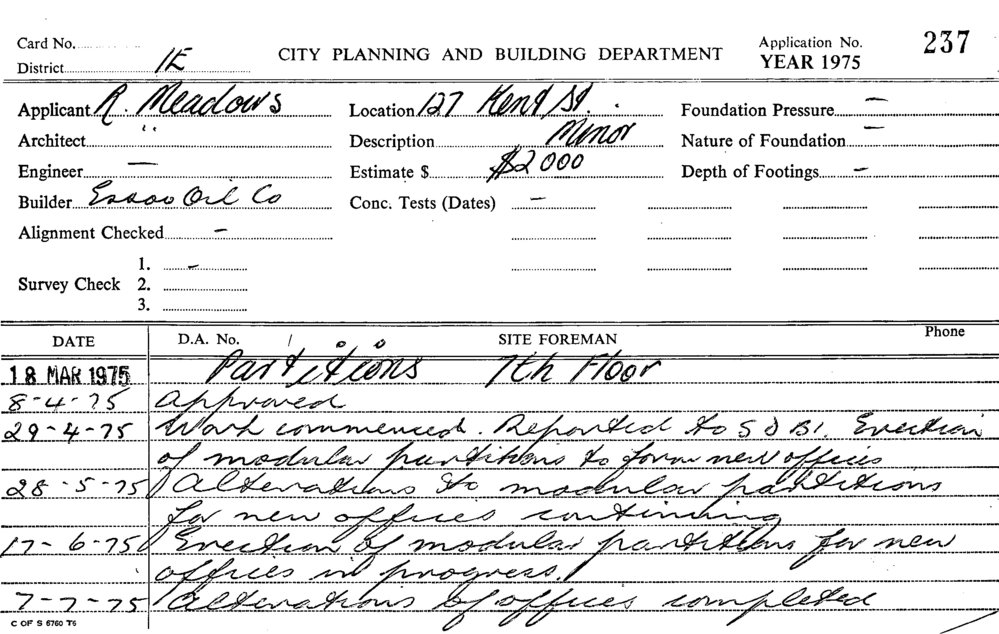 Card No.
District 1E
CITY PLANNING AND BUILDING DEPARTMENT
Application No. 237
YEAR 1975
Applicant R. Meadows
Location 127 Kent St.
Foundation Pressure –
Architect "
Description Minor
Nature of Foundation –
Engineer –
Estimate $ $2000
Depth of Footings –
Builder Esso Oil Co
Conc. Tests (Dates) –
Alignment Checked –
Survey Check 1. –
2.
3.
DATE D.A. No. SITE FOREMAN Phone
18 MAR 1975 Partitions 7th Floor
8-4-75 Approved
29-4-75 Work commenced. Reported to S D BI. Erection
of modular partitions to form new offices
28-5-75 Alterations to modular partitions
for new offices continuing
17-6-75 Erection of modular partitions for new
offices in progress.
7-7-75 Alterations of offices completed
C OF S 6760 T6